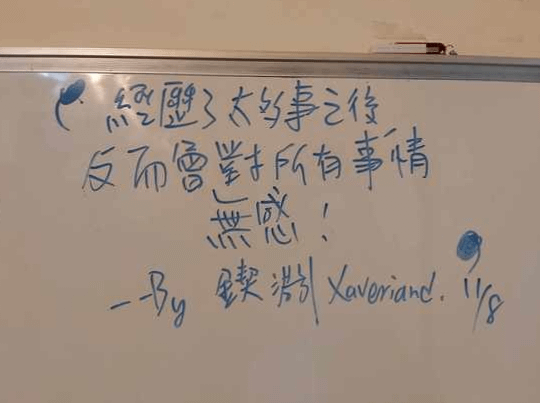 經歷了太多事之後
反而會對所有事情
無感！
--By 鍥淵 Xaveriand. 11/8